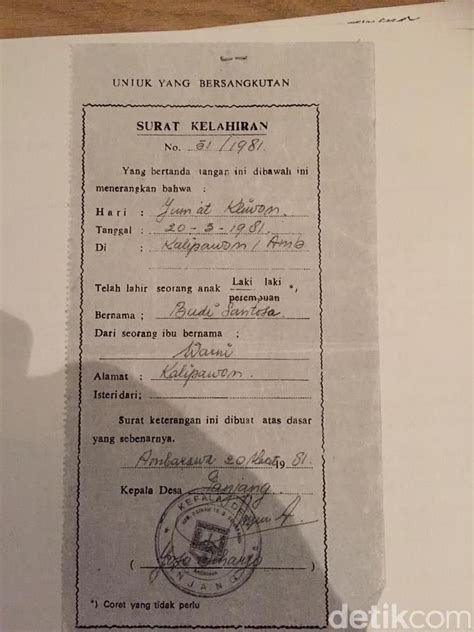 UNTUK YANG BERSANGKUTAN
SURAT KELAHIRAN
No. 31/1981.
Yang bertanda tangan ini dibawah ini
menerangkan bahwa :
Hari : Jum'at Kliwon.
Tanggal : 20-3-1981.
Di : Kalipawon / Amb
Telah lahir seorang anak Laki laki *,
perempuan
Bernama : Budi Santosa
Dari seorang ibu bernama :
Warni
Alamat : Kalipawon.
Isteridari;
Surat keterangan ini dibuat atas dasar
yang sebenarnya.
Ambarawa 20 1981.
Kepala Desa Panjang
KEPALA DESA
PANJANG
( )
*) Coret yang tidak perlu
detikcom